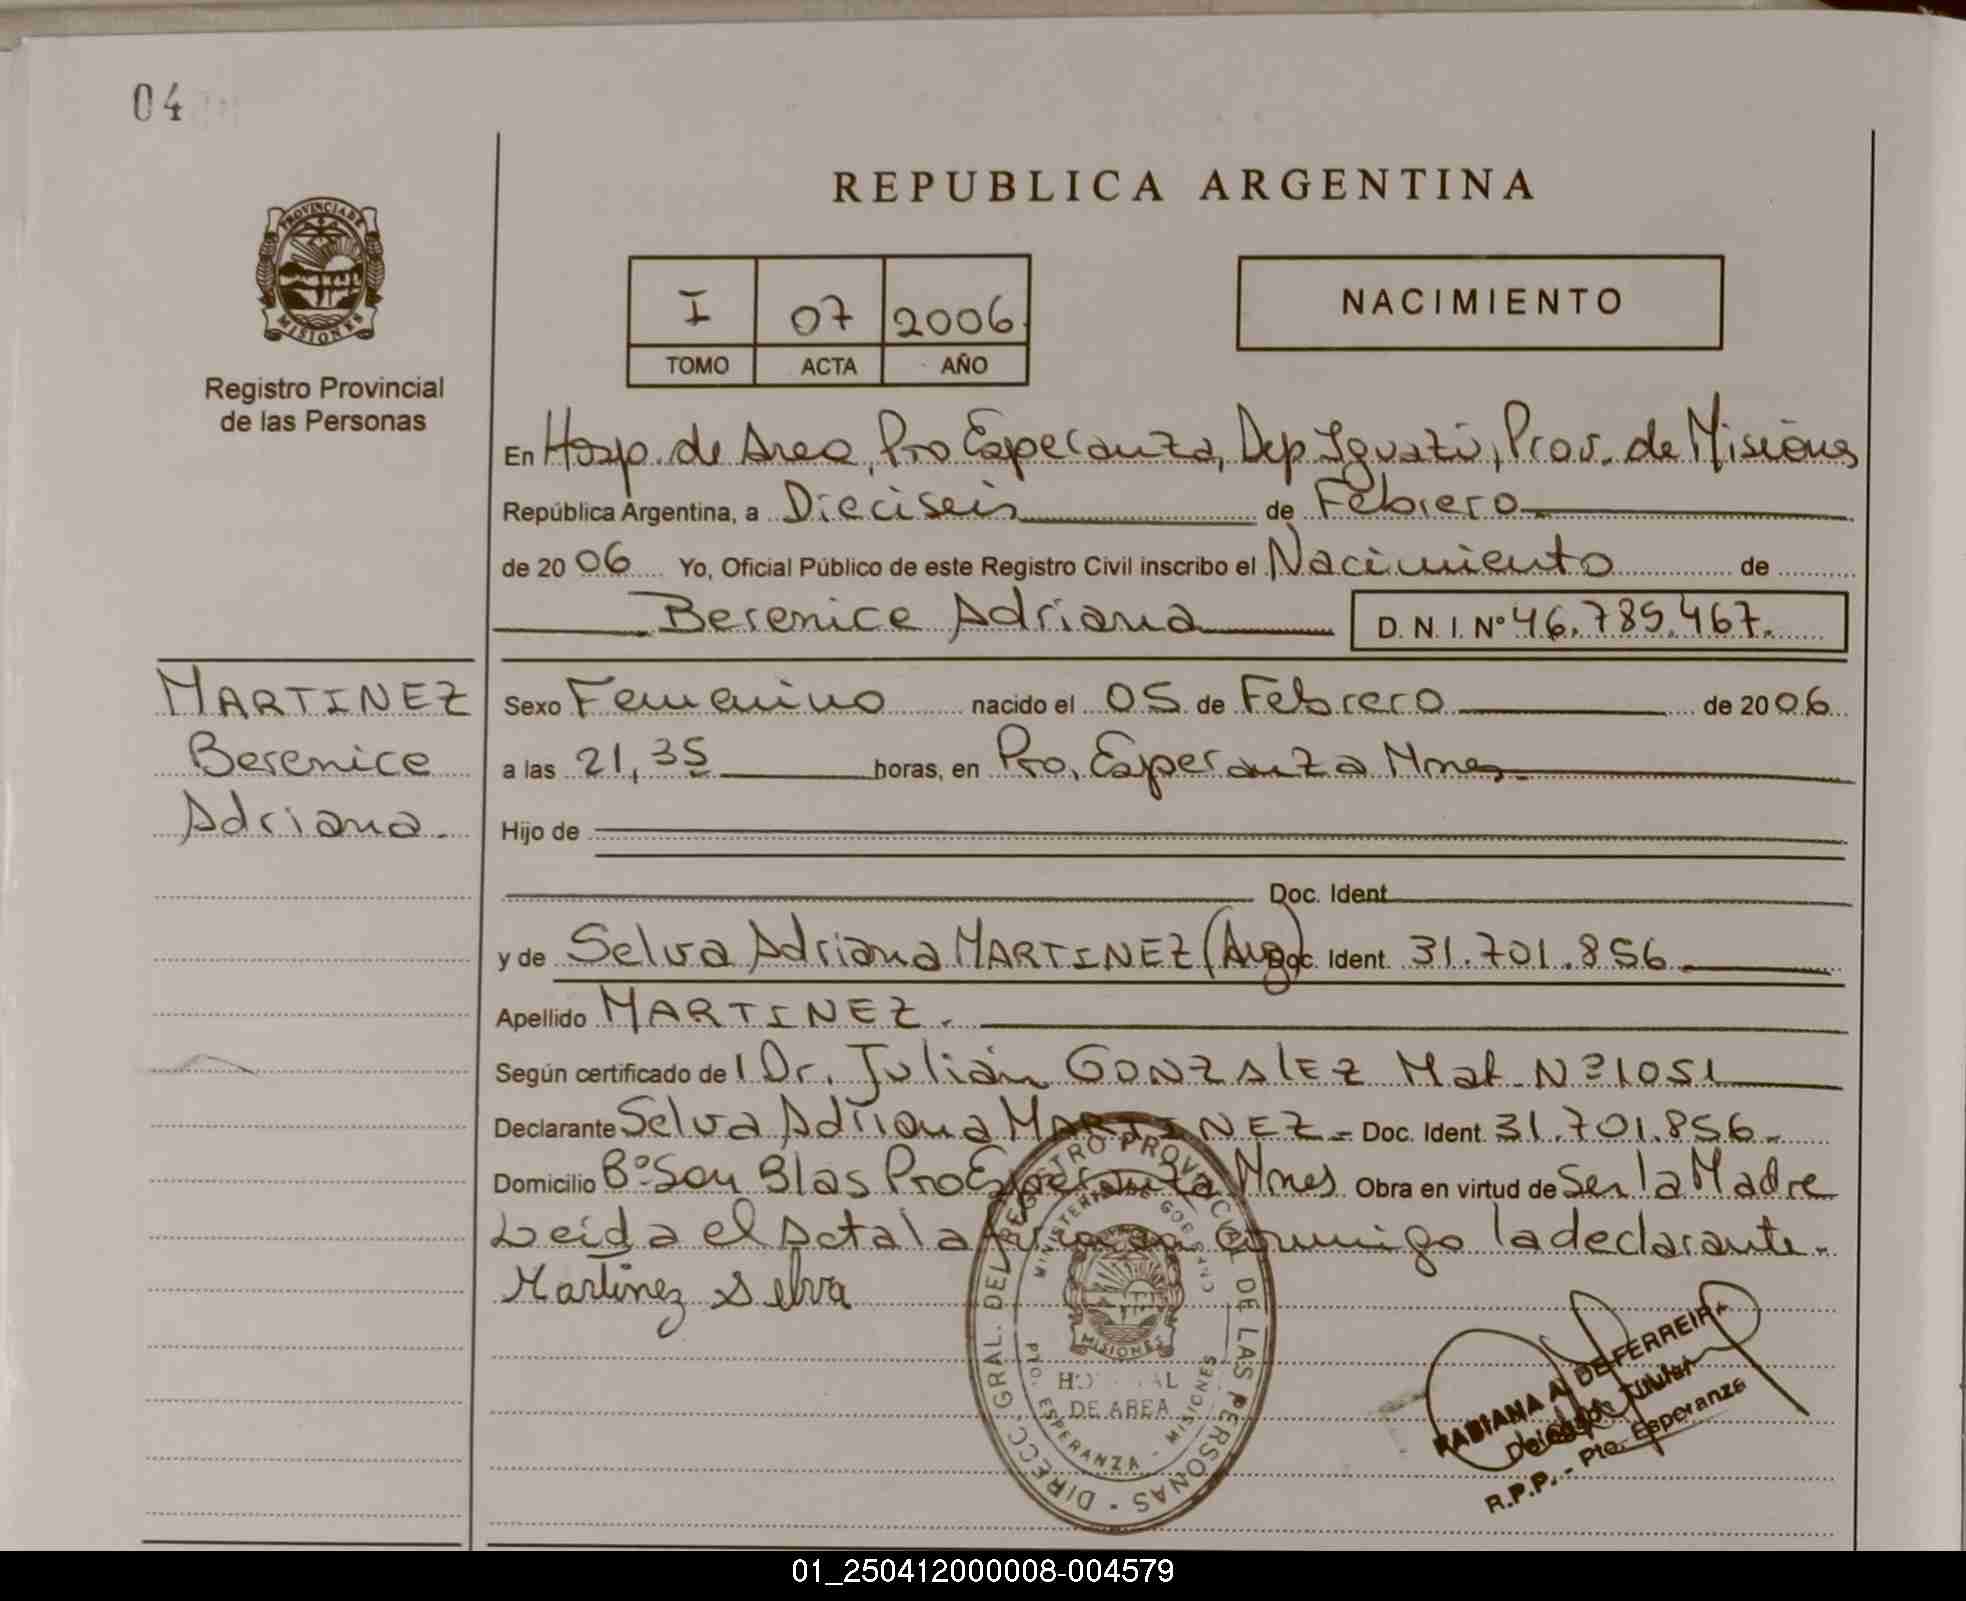 04
REPUBLICA ARGENTINA
PROVINCIA DE
MISIONES
Registro Provincial
de las Personas
I 07 2006
TOMO ACTA AÑO
NACIMIENTO
En Hosp. de Area, Pto Esperanza, Dep Iguazú, Prov. de Misiones
República Argentina, a Dieciseis de Febrero
de 2006 Yo, Oficial Público de este Registro Civil inscribo el Nacimiento de
Berenice Adriana D. N. I. Nº 46.785.467.
MARTINEZ
Berenice
Adriana.
Sexo Femenino nacido el 05 de Febrero de 2006
a las 21,35 horas, en Pto. Esperanza Mnes.
Hijo de
Doc. Ident.
y de Selva Adriana MARTINEZ (Arg) Doc. Ident. 31.701.856
Apellido MARTINEZ.
Según certificado de l Dr. Julián GONZALEZ Mat. Nº 1051
Declarante Selva Adriana MARTINEZ - Doc. Ident. 31.701.856.
Domicilio Bº San Blas Pto Esperanza Mnes Obra en virtud de Ser la Madre
Leida el Acta la firma conmigo la declarante.
Martinez Selva
DIRECC. GRAL. DEL REGISTRO PROVINCIAL DE LAS PERSONAS
MINISTERIO DE GOB.
MISIONES
HOSPITAL
DE AREA
PTO. ESPERANZA - MISIONES
FABIANA A. DE FERREIRA
Delegada Titular
R.P.P. - Pto. Esperanza
01_250412000008-004579